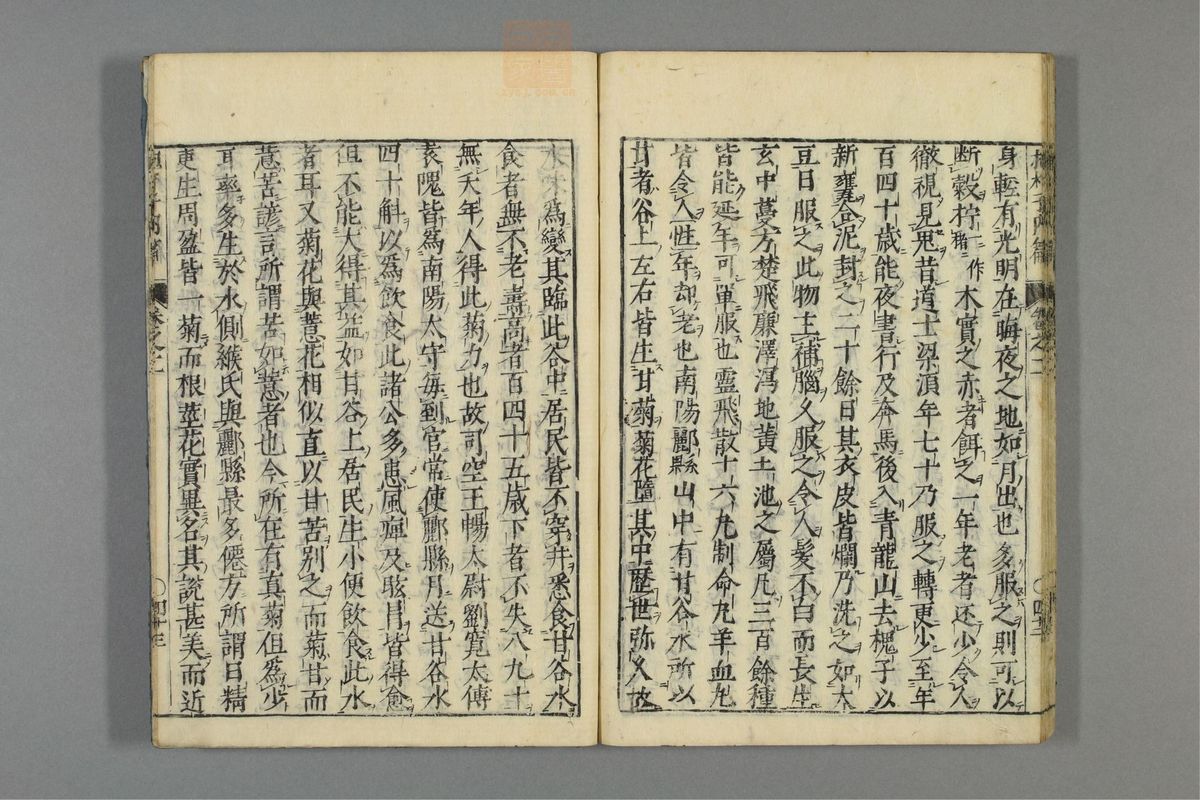 身轉有光明在晦夜之地如月出也多服之則可以
断穀柠一作楮木實之赤者餌之一年老者还少令人
徹視見鬼昔道士梁湏年七十乃服之轉更少至年
百四十歳能夜書行及奔馬後入青龍山去槐子以
新甕合泥封之二十餘日其衣皮皆爛乃洗之如大
豆日服之此物主補腦久服之令人髮不白而長生
玄中蔓方楚飛廉澤瀉地黃土池之屬凡三百餘種
皆能延年可單服也靈飛散十六丸制命丸羊血丸
皆令人性年却老也南陽酈縣山中有甘谷水所以
甘者谷上左右皆生甘菊菊花墮其中歴世弥久故
水味爲變其臨此谷中居民皆不穿井悉食甘谷水
食者無不老壽高者百四十五歳下者不失八九十
無夭年人得此菊力也故司空王暢太尉劉寛太傅
袁隗皆爲南陽太守毎到官常使酈縣月送甘谷水
四十斛以爲飲食此諸公多患風痺及眩冒皆得愈
但不能大得其益如甘谷上居民生小便飲食此水
者耳又菊花與薏花相似直以甘苦别之而菊甘而
薏苦諺言所謂苦如薏者也今所在有真菊但爲少
耳率多生於水側緱氏與酈縣最多僊方所謂日精
更生周盈皆一菊而根莖花實異名其說甚美而近